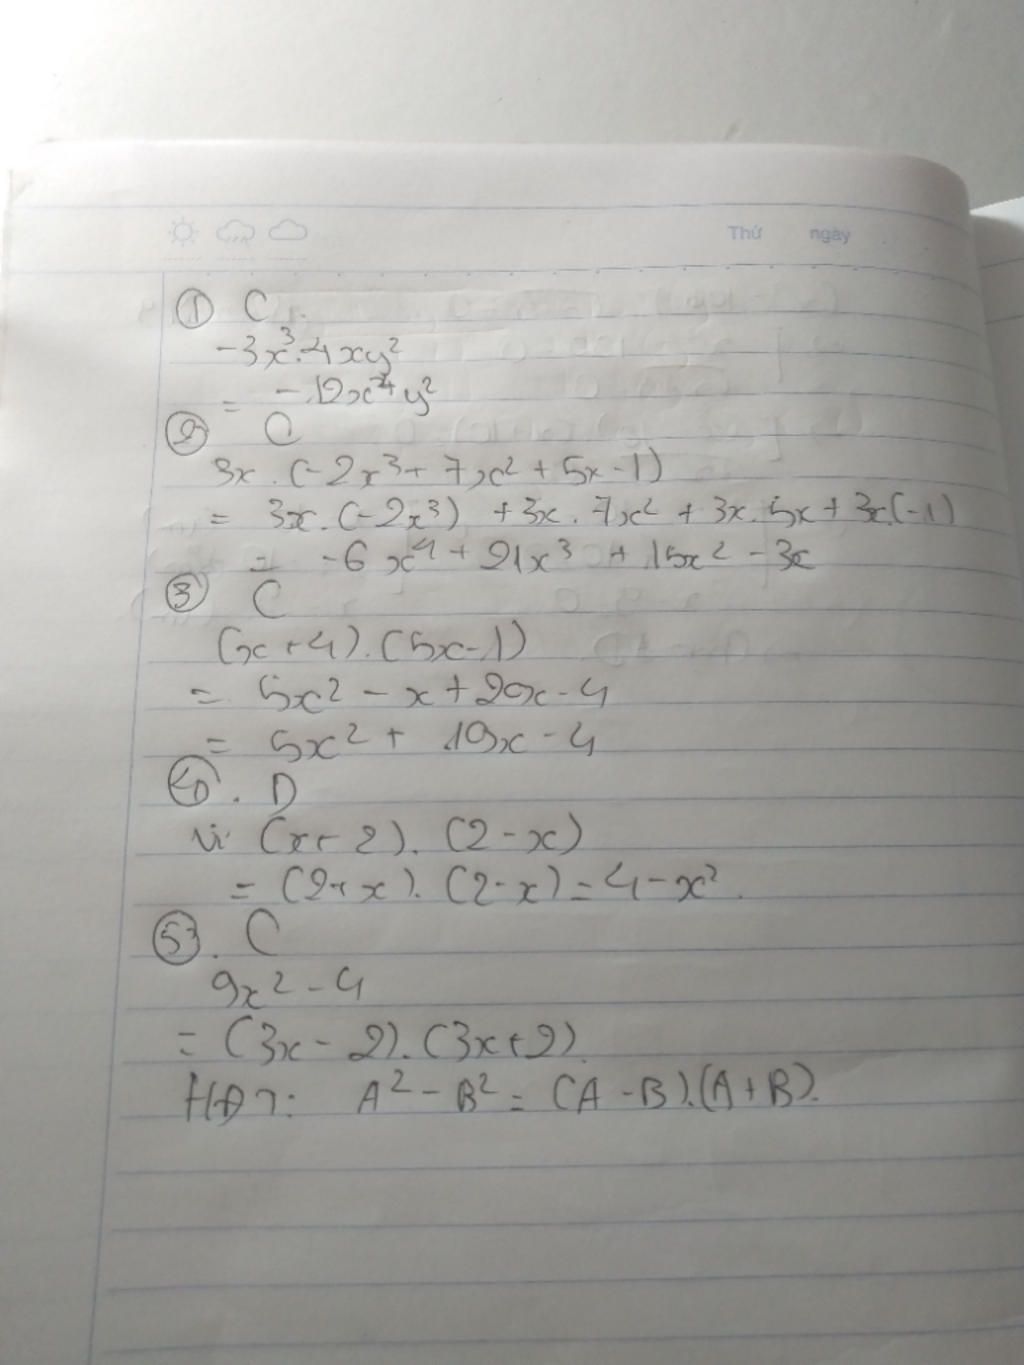 Thứ ngày
① C.
-3x³.4xy²
= -12x⁴y²
② C
3x.(-2x³+7x²+5x-1)
= 3x.(-2x³) +3x.7x² +3x.5x+3x.(-1)
= -6x⁴+21x³ +15x² -3x
③ C
(x+4).(5x-1)
= 5x² - x+20x-4
= 5x²+ 19x-4
④. D
Vì (x+2).(2-x)
= (2+x).(2-x)=4-x².
⑤. C
9x²-4
= (3x-2).(3x+2).
HĐT: A²-B²= (A-B).(A+B).